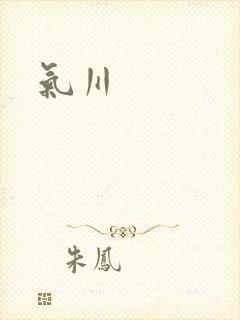 氣川
朱鳳